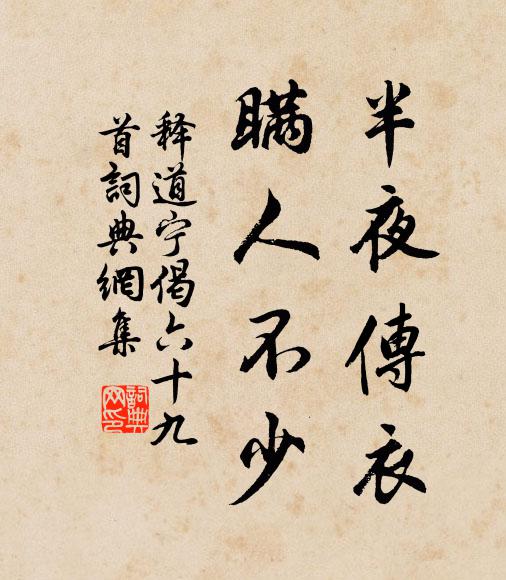 半夜傳衣
瞞人不少
释道宁偈六十九
首詞典網集
詞典
网印